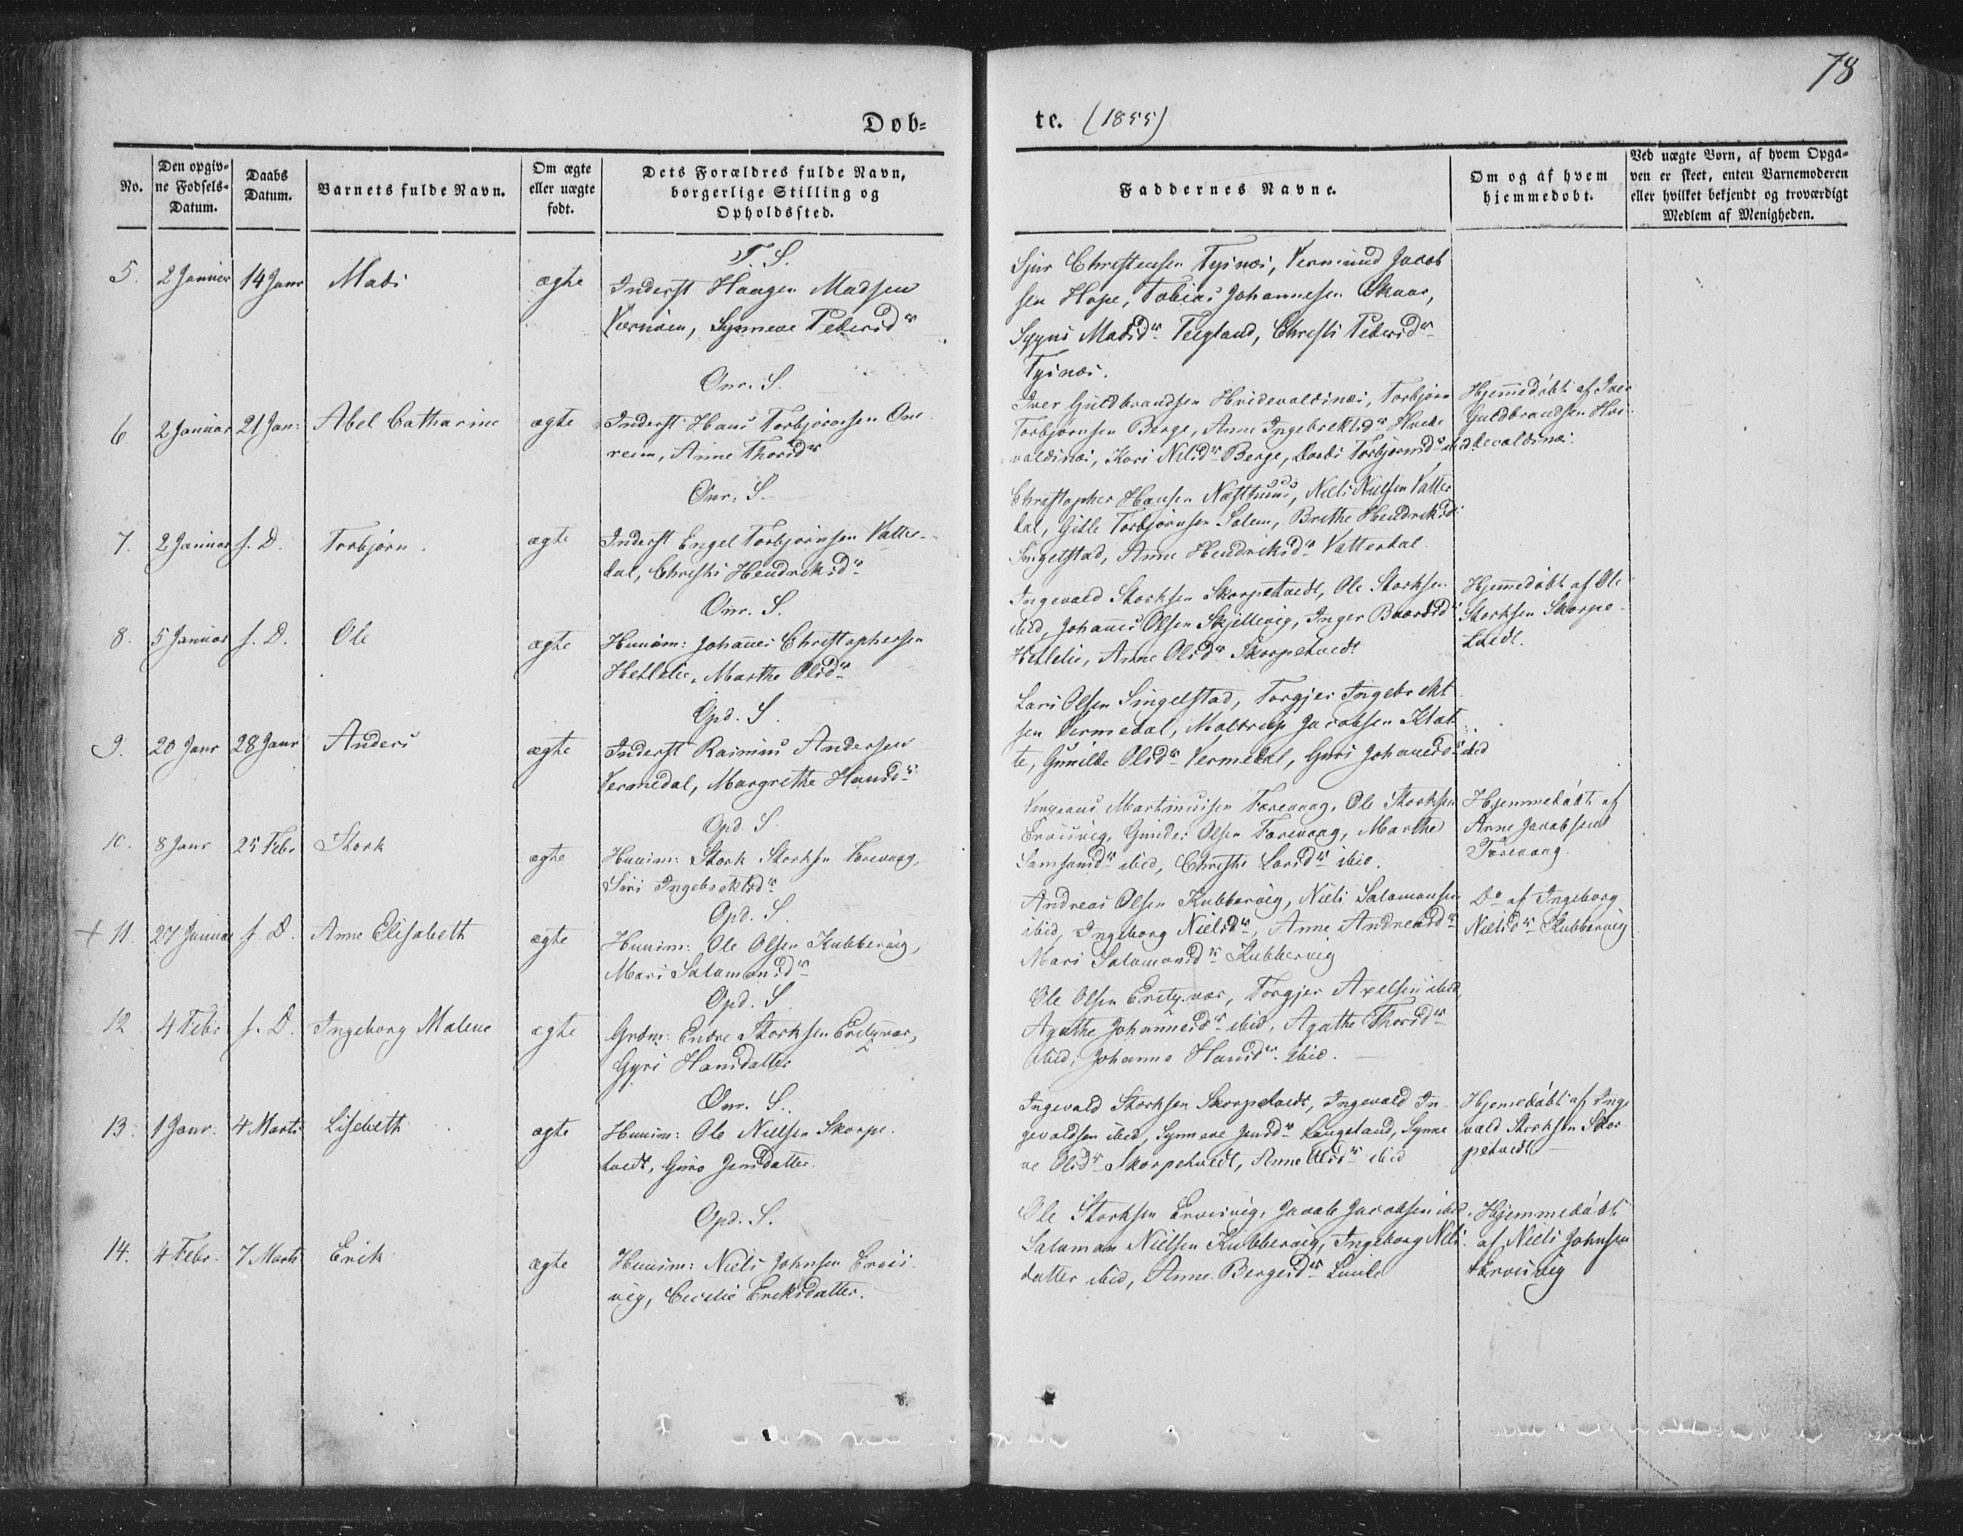 78
Døb=
te. (1855)
No.
Den opgiv=
ne Fødsels=
Datum.
Daabs
Datum.
Barnets fulde Navn.
Om ægte
eller uægte
født.
Dets Forældres fulde Navn,
borgerlige Stilling og
Opholdssted.
Faddernes Navne.
Om og af hvem
hjemmedøbt.
Ved uægte Børn, af hvem Opga=
ven er skeet, enten Barnemoderen
eller hvilket bekjendt og troværdigt
Medlem af Menigheden.
T. S.
5. 2 Januar 14 Janr Mads ægte
Inderst Haagen Madsen
Synneve Pedersdr
Sjur Christensen Tysnæs, Vermund Jacob
sen Hope, Tobias Johannesen Skaar,
Madsdr Teigland, Christi Pedersdr
Tysnæs.
Onr. S.
6 2 Januar 21 Jan: Abel Catharine ægte
Inderst Hans Torbjørnsen One
reim, Anne Thorsdr
Iver Guldbrandsen Hvidevoldsnæs, Torbjørn
Torbjørnsen Berge, Anne Ingebrektsdr Hvide
voldsnæs, Kari Nilsdr Berge, Torbjørnsdr ibid
Hjemmedøbt af Iver
Guldbrandsen Hvi
devoldsnæs.
Onr. S.
7. 2 Januar s. D. Torbjørn. ægte
Inderst Engel Torbjørnsen Vatte
dal, Christi Hendriksdr
Christopher Hansen Næsthuus, Niels Nielsen Vatte
dal, Gitle Torbjørnsen Solem, Brithe Hendriksdr
Singelstad, Anne Hendriksdr Vattedal.
Onr. S.
8. 5 Januar s. D. Ole ægte
Huusm: Johannes Christophersen
Hetlelie, Marthe Olsdr
Ingevald Storksen Skorpetvedt, Ole Storksen
ibid, Johannes Olsen Skjellevig, Inger Baardsdr
Hetlelie, Anne Olsdr Skorpetvedt
Hjemmedøbt af Ole
Storksen Skorpe
tvedt.
Opd. S.
9. 20 Janr 28 Janr Anders ægte
Inderst Rasmus Andersen
Vermedal, Margrethe Hansdr
Lars Olsen Singelstad, Torgjer Ingebrekt
sen Vermedal, Jacobsen Klat
te, Gunilde Olsdr Vermedal, Guri Johannesdr ibid
Opd. S.
10. 8 Janr 25 Febr Stork ægte
Huusm: Stork Storksen Færevaag,
Siri Ingebrektsdr
Martinussen Færevaag, Ole Storksen
Ervesvig, Gunder Olsen Færevaag, Marthe
Samsonsdr ibid, Christi Larsdr ibid.
Hjemmedøbt af
Anne Jacobsen
Færevaag.
Opd. S.
+ 11. 27 Januar s. D. Anne Elisabeth ægte
Huusm: Ole Olsen Kubbervig,
Mari Salamonsdr
Andreas Olsen Kubbervig, Niels Salamonsen
ibid, Ingeborg Nielsdr, Anne Andreasdr
Mari Salamonsdr Kubbervig
Do af Ingeborg
Nielsdr Kubbervig
Opd. S.
12 4 Febr s. D. Ingeborg Malene ægte
Grdm: Endre Storksen Eretzvær,
Gyri Hansdatter
Ole Olsen Eretzvær, Torgjer Axelsen ibid,
Agathe Johannesdr ibid, Agathe Thorsdr
ibid, Johanne Hansdr ibid.
Onr. S.
13. 1 Janr. 4 Marts Lisebeth ægte
Huusm: Ole Nielsen Skorpe
tvedt, Guro Jensdatter.
Ingevald Storksen Skorpetvedt, Ingevald In
gevaldsen ibid, Synneve Jensdr Laugeland, Synne
ve Olsdr Skorpetvedt, Anne Olsdr ibid
Hjemmedøbt af Inge
vald Storksen Skor
petvedt
Opd. S.
14. 4 Febr. 7 Marts Erik ægte
Huusm: Niels Johnsen Erves
vig, Cecilie Eriksdatter.
Ole Storksen Ervesvig, Jacob Jacobsen ibid,
Salamon Nielsen Kubbervig, Ingeborg Niels
datter ibid, Anne Bergesdr Lunde
Hjemmedøbt
af Niels Johnsen
Ervesvig